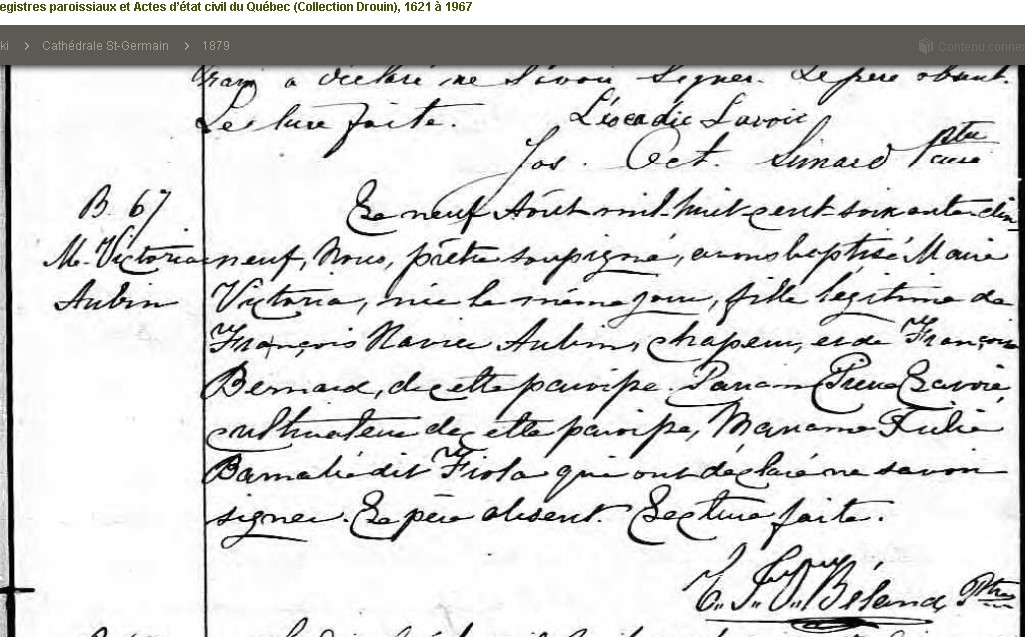 egistres paroissiaux et Actes d'état civil du Québec (Collection Drouin), 1621 à 1967
ki > Cathédrale St-Germain > 1879
a déclaré ne savoir signer. Le père absent.
Lecture faite. Léocadie Savoie
Jos. Oct. Simard ptre curé
B. 67
M. Victoria
Aubin
Le neuf Août mil-huit-cent-soixante-dix-
neuf, Nous, prêtre soussigné, avons baptisé Marie
Victoria, née le même jour, fille légitime de
François Xavier Aubin, chapeur, et de Françoise
Bernard, de cette paroisse. Parrain Pierre Savoie,
cultivateur de cette paroisse, Marraine Julie
Barnabé dit Fiola qui ont déclaré ne savoir
signer. Le père absent. Lecture faite.
Béland Ptre